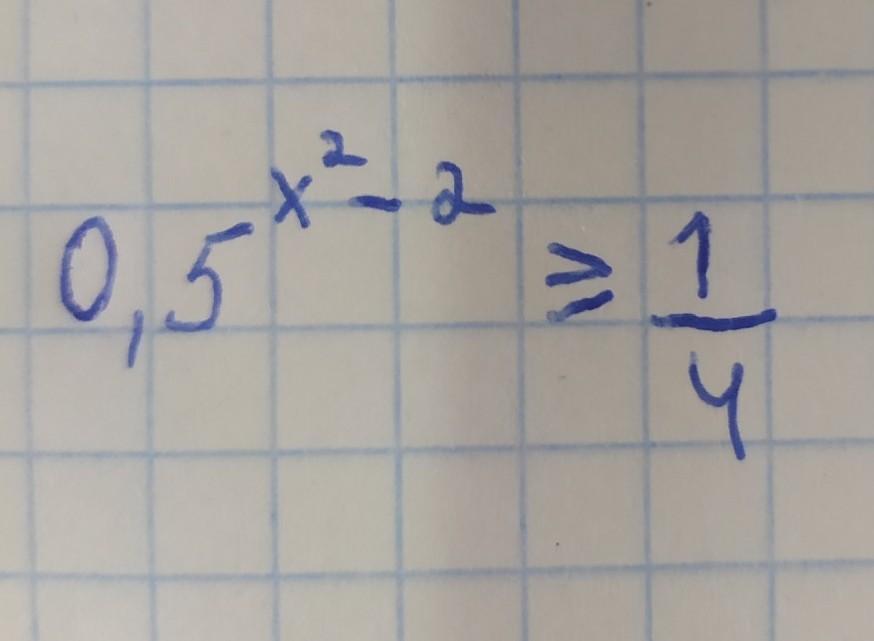 0,5^{x^2-2} ≥ \frac{1}{4}